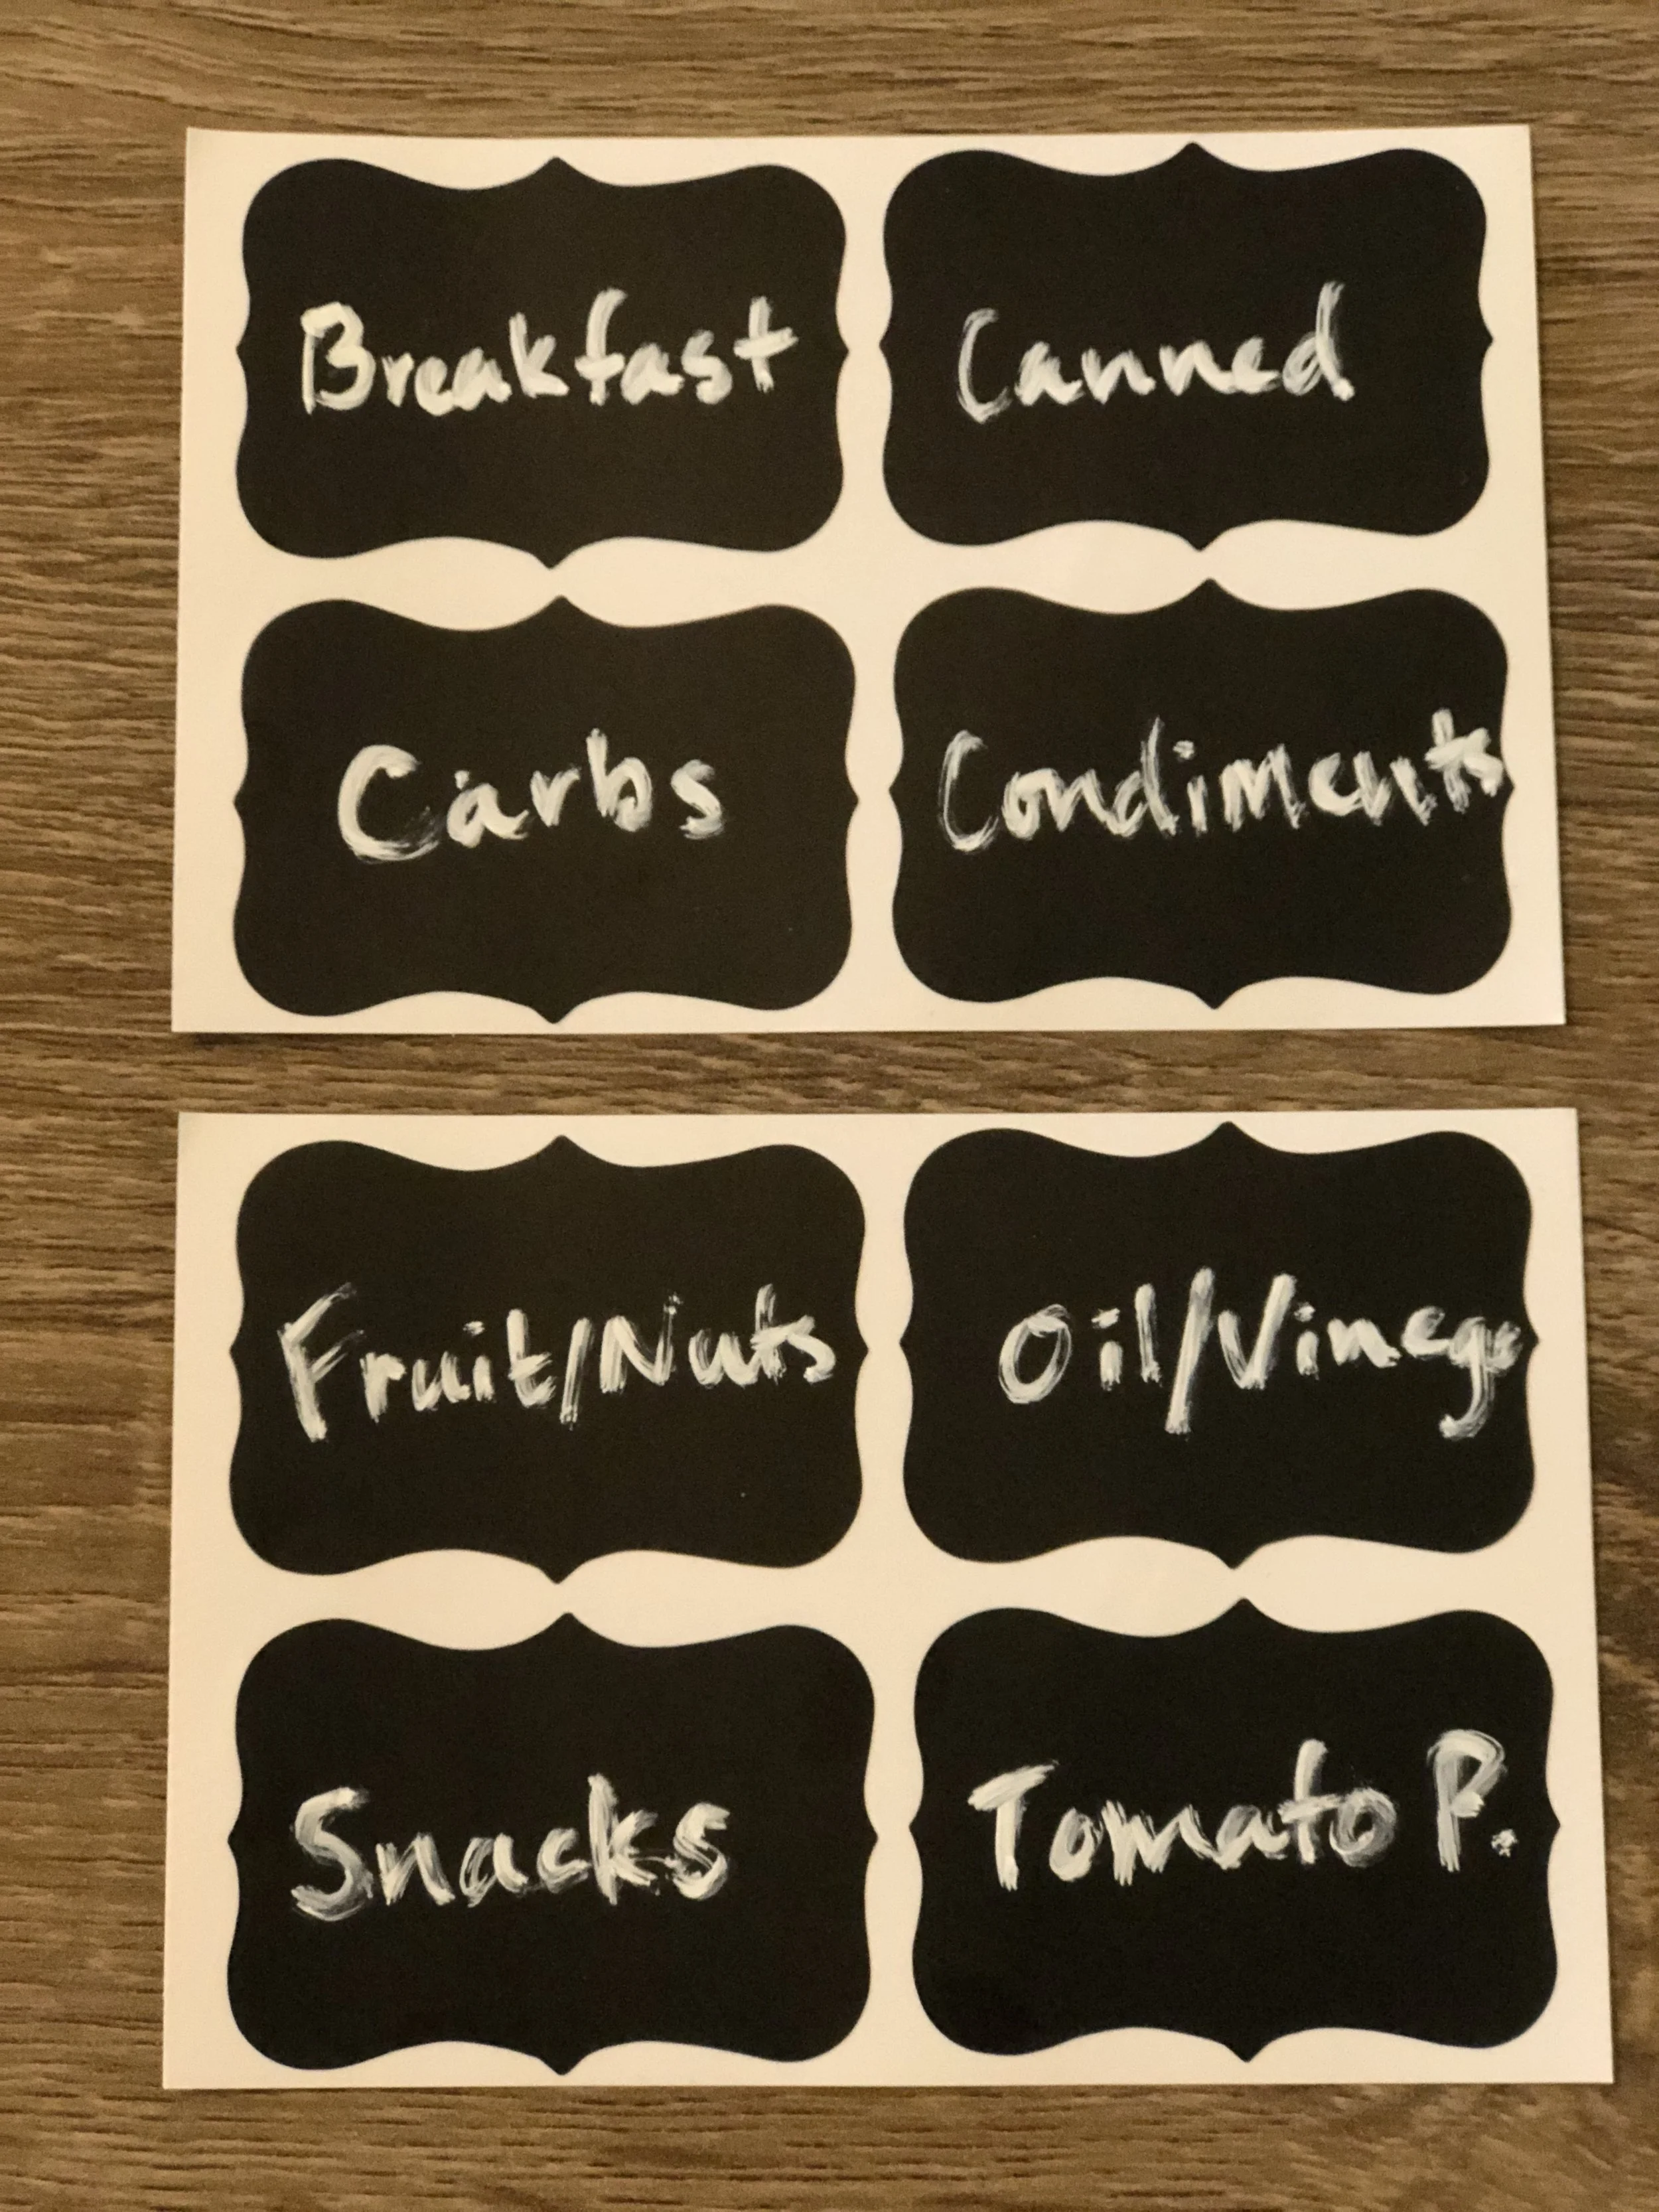 Breakfast
Canned
Carbs
Condiments
Fruit/Nuts
Oil/Vinega
Snacks
Tomato P.